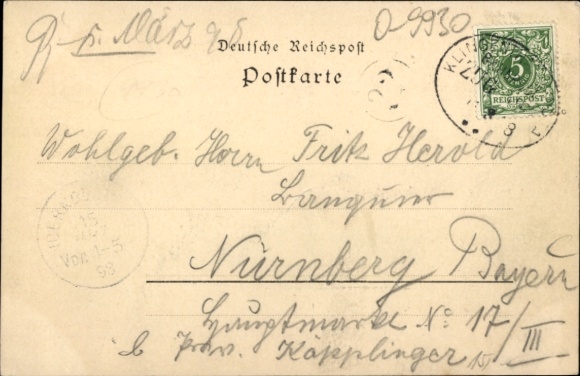 5. März 98
O-9930
Deutsche Reichspost
Postkarte
5
REICHSPOST
KLINGENT
Wohlgeb. Herrn Fritz Herold
Banquier
NUERNBERG
15
Vor. 4-5
98
Nürnberg Bayern
Hauptmarkt No 17/III
b Priv. Käpplinger